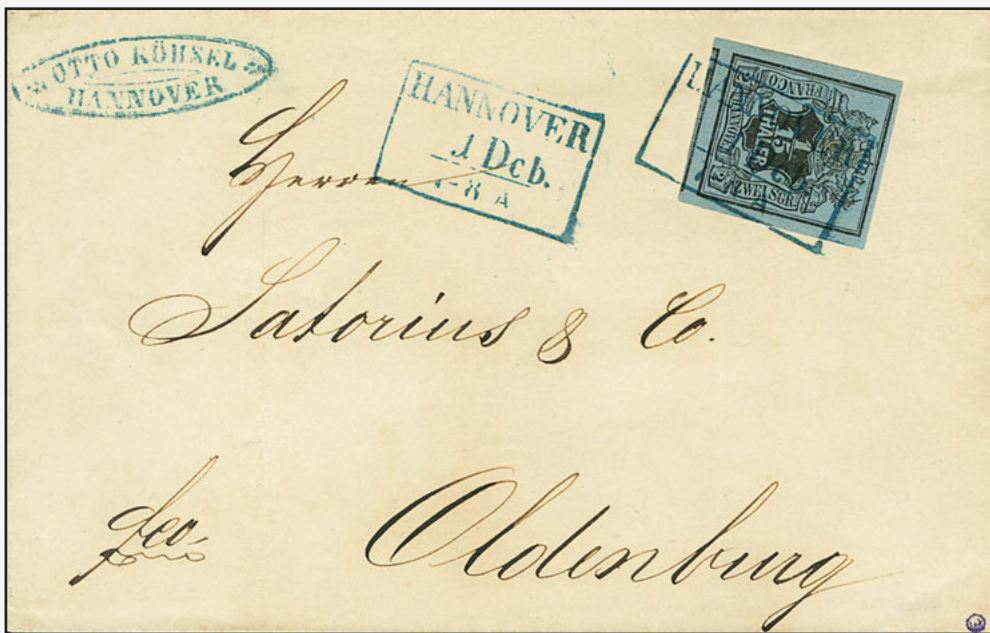 OTTO KÖHSEL
HANNOVER
HANNOVER
1 Dcb.
-8 A
FRANCO
HANNOVER
1
15
THALER
2 ZWEI SGR. 2
Herren
Satorius & Co.
fco
Oldenburg